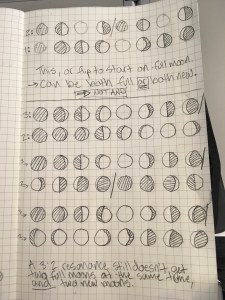 This, or flip to start on full moon.
→ Can be both full OR both new.
NOT AND
A 3:2 resonance still doesn't get
two full moons at the same time,
and two new moons.